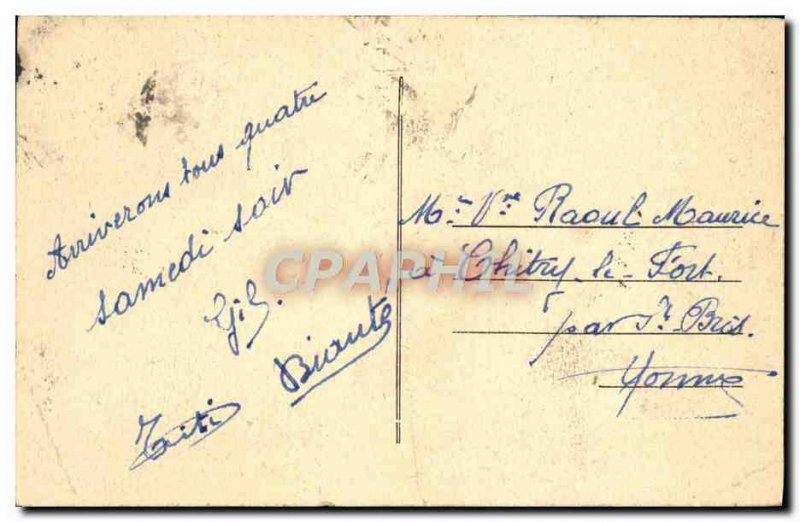 Arriverons tous quatre
samedi soir
Gil.
Biante
Titi
Mme Vve Raoul Maurice
à Chitry-le-Fort.
par St Bris.
Yonne
CPAPHIL